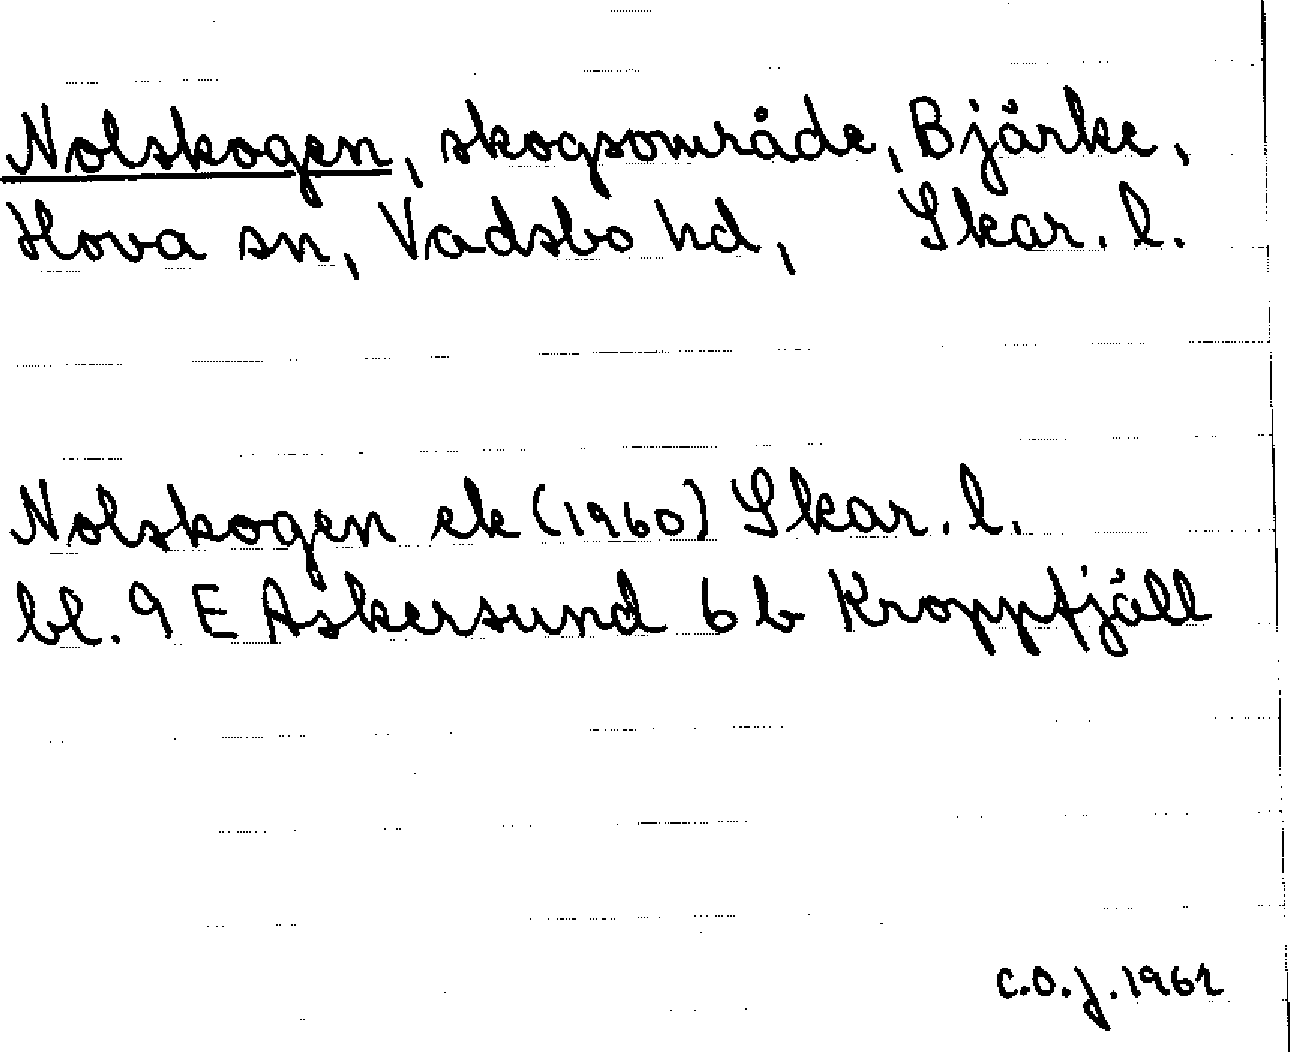 Nolskogen, skogsområde, Bjärke,
Hova sn, Vadsbo hd, Skar. l.
Nolskogen ek (1960) Skar. l.
bl. 9 E Askersund 6 b Kroppfjäll
C.O.J. 1962